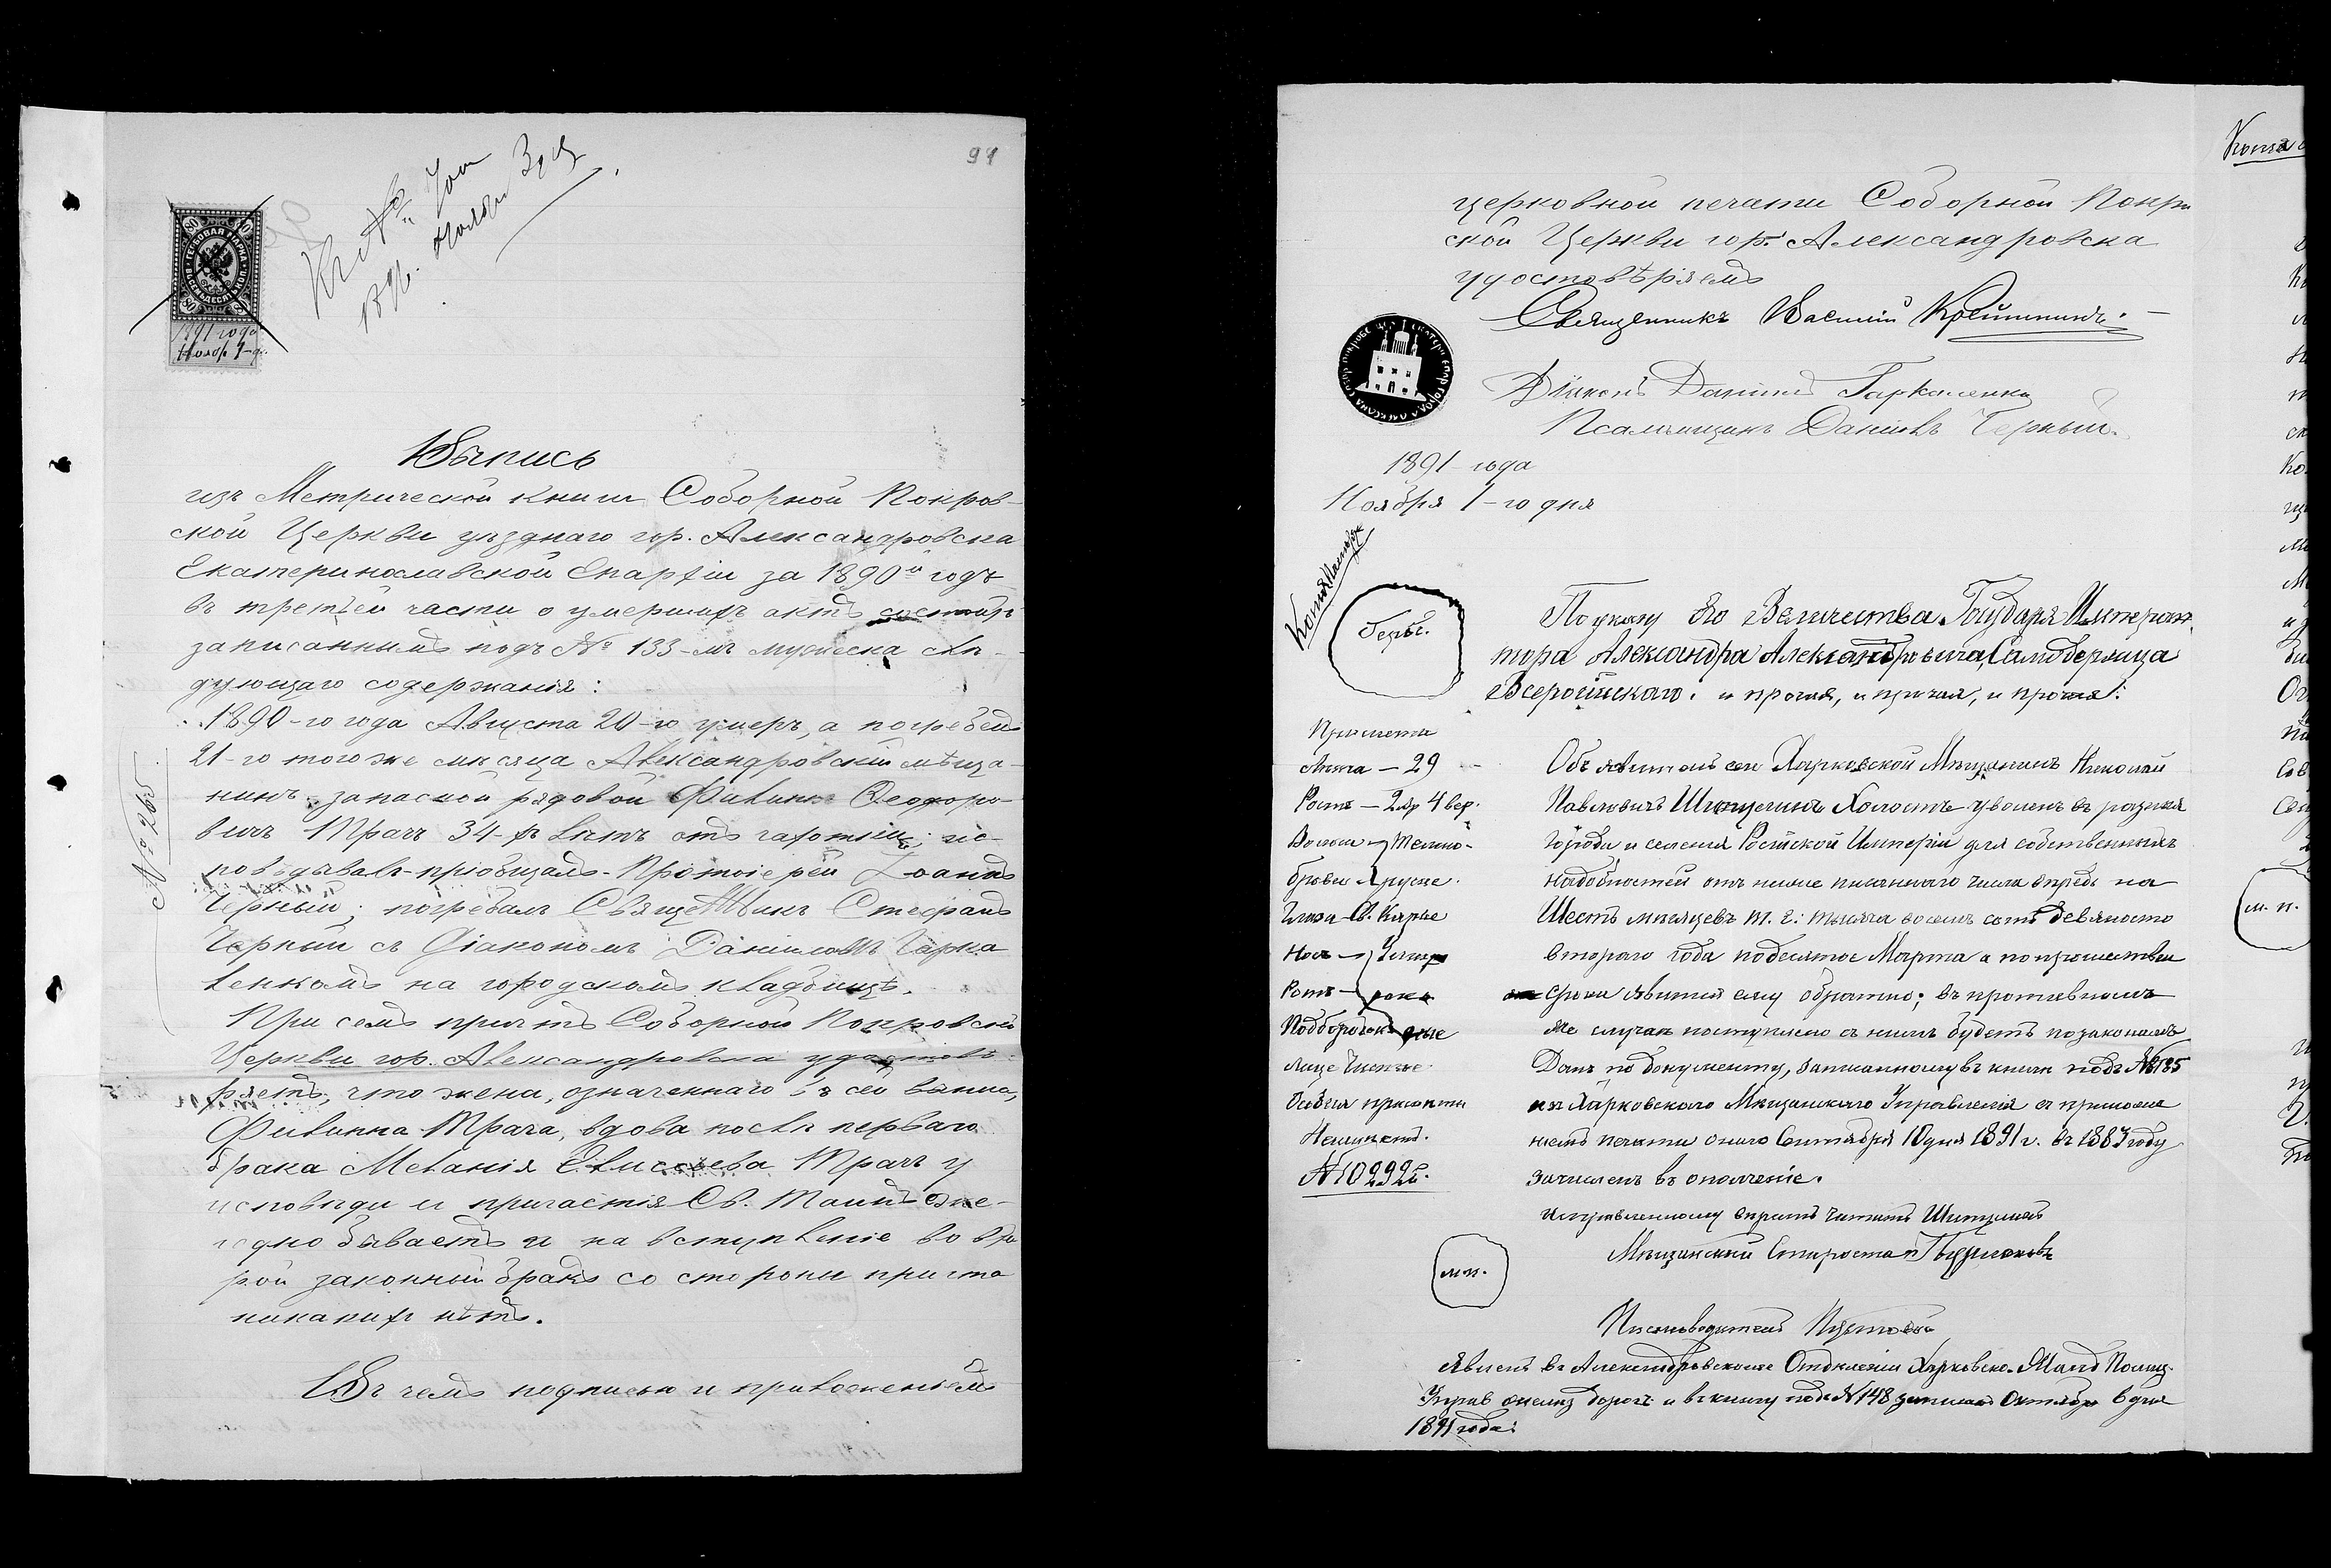 94
Къ № 
1891. Ноября 3 дня
80
ГЕРБОВАЯ МАРКА
ВОСЕМЬДЕСЯТЪ КОП.
1891 года
Нояб. 1-д.
Выпись
изъ Метрической книги Соборной Покров-
ской Церкви уѣзднаго гор. Александровска
Екатеринославской Епархіи за 1890й годъ
въ третьей части о умершихъ актъ состоитъ
записаннымъ подъ № 133-мъ мужеска слѣ-
дующаго содержанія:
1890-го года Августа 20-го умеръ, а погребенъ
21-го того же мѣсяца Александровскій мѣща-
нинъ запасной рядовой Филиппъ Ѳеодоро-
вичъ Трачъ 34-хъ лѣтъ отъ чахотки; ис-
повѣдывалъ-пріобщалъ-Протоіерей Іоаннъ
Черный; погребалъ Священникъ Стефанъ
Черный съ Діакономъ Даніиломъ Гарка
ленкомъ на городскомъ кладбищѣ.
№ 265
При семъ причтъ Соборной Покровской
Церкви гор. Александровска удостовѣ-
ряетъ, что жена, означеннаго въ сей выписи,
Филиппа Трача, вдова послѣ перваго
брака Меланія Елисеева Трачъ у
исповѣди и причастія Св. Таинъ еже-
годно бываетъ и на вступленіе во вто
рой законный бракъ со стороны причта
никакихъ нѣтъ.
Въ чемъ подписью и приложеніемъ
церковной печати Соборной Покро
ской Церкви гор. Александровска
удостовѣряемъ
Священникъ Василій
Діаконъ Даніилъ Гаркаленко
Псаломщикъ Даніилъ Черный.
1891 года
Ноября 1-го дня
Копія
Гербъ.
По указу Его Величества Государя Императ
тора Александра Александровича, Самодержца
Всероссійскаго. и прочая, и прочая, и прочая:
Примѣты
Лѣта — 29
Ростъ — 2 ар 4 вер.
Волосы } Темно-
брови } русые.
Глаза — Св. Каріе
Носъ — } Умѣр
Ротъ — } 
Подбородокъ } ные
Лице Чистое
Особыя примѣты
Не имѣетъ.
№ 10292
Объявитель сего Харковской Мѣщанинъ Николай
Павловичъ Холостъ уволенъ въ разные
города и селенія Россійской Имперіи для собственныхъ
надобностей отъ ниже писаннаго числа впредь на
Шесть мѣсяцевъ т. е: тысяча восемь сотъ девяносто
втораго года по десятое Марта а по прошествіи
срока явиться ему обратно; въ противномъ
же случаѣ поступлено съ нимъ будетъ по законамъ
Данъ по документу, записанному въ книгѣ подъ №185
изъ Харковскаго Мѣщанскаго Управленія съ приложе
ніемъ печати онаго Сентября 10 дня 1891 г. въ 1883 году
зачисленъ въ ополченіе.
Исправленному вѣрить читать
Мѣщанскій Староста
М.п.
Письмоводитель
Явленъ въ Александровскомъ Отдѣленіи Харковско. Жанд Полиц.
Управ желѣз дорогъ и въ книгу подъ №148 записанъ Октября 6 дня
1891 года:
Копія
м. п.